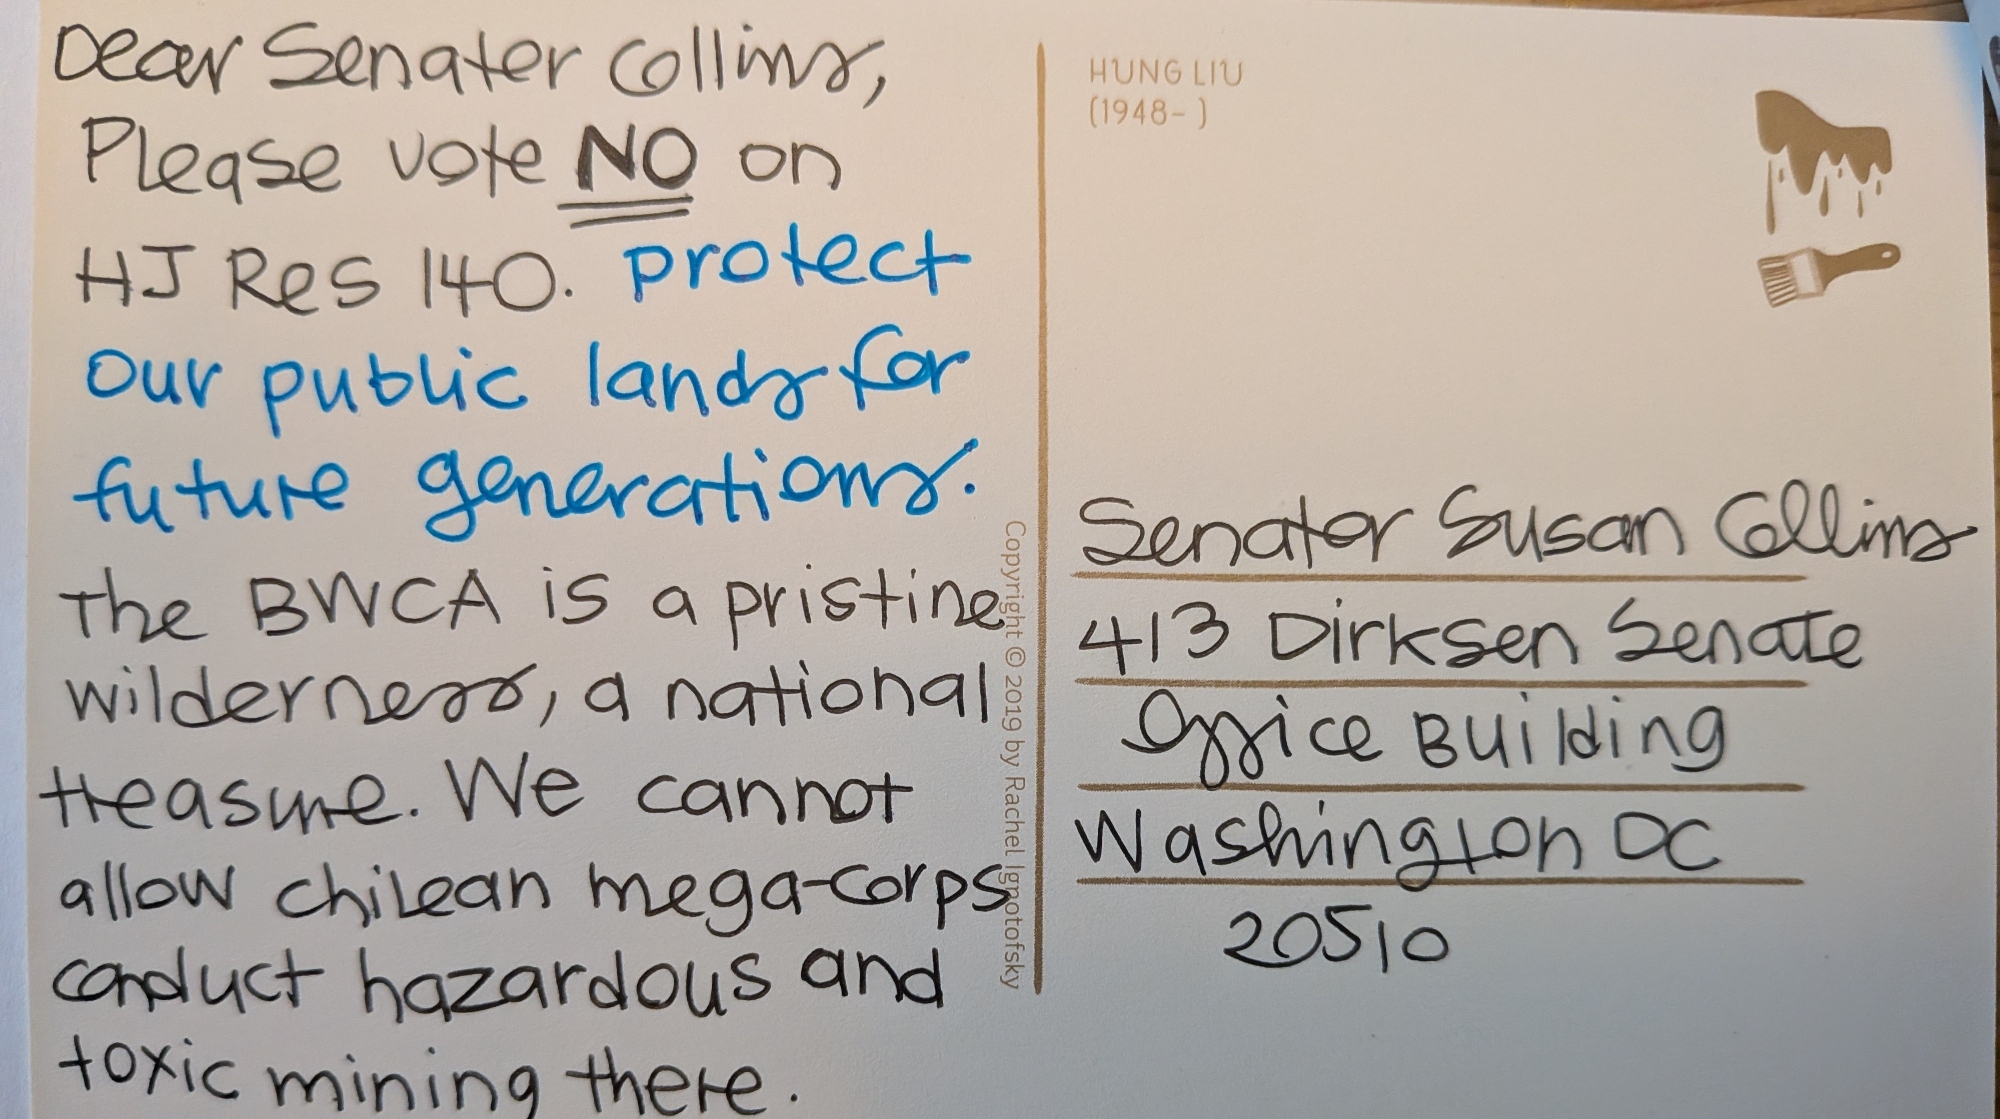 Dear Senator Collins,
Please vote NO on
HJ Res 140. protect
our public lands for
future generations.
the BWCA is a pristine
wilderness, a national
treasure. We cannot
allow chilean mega-corps
conduct hazardous and
toxic mining there.
Copyright © 2019 by Rachel Ignotofsky
HUNG LIU
(1948- )
Senator Susan Collins
413 Dirksen Senate
Office Building
Washington DC
20510